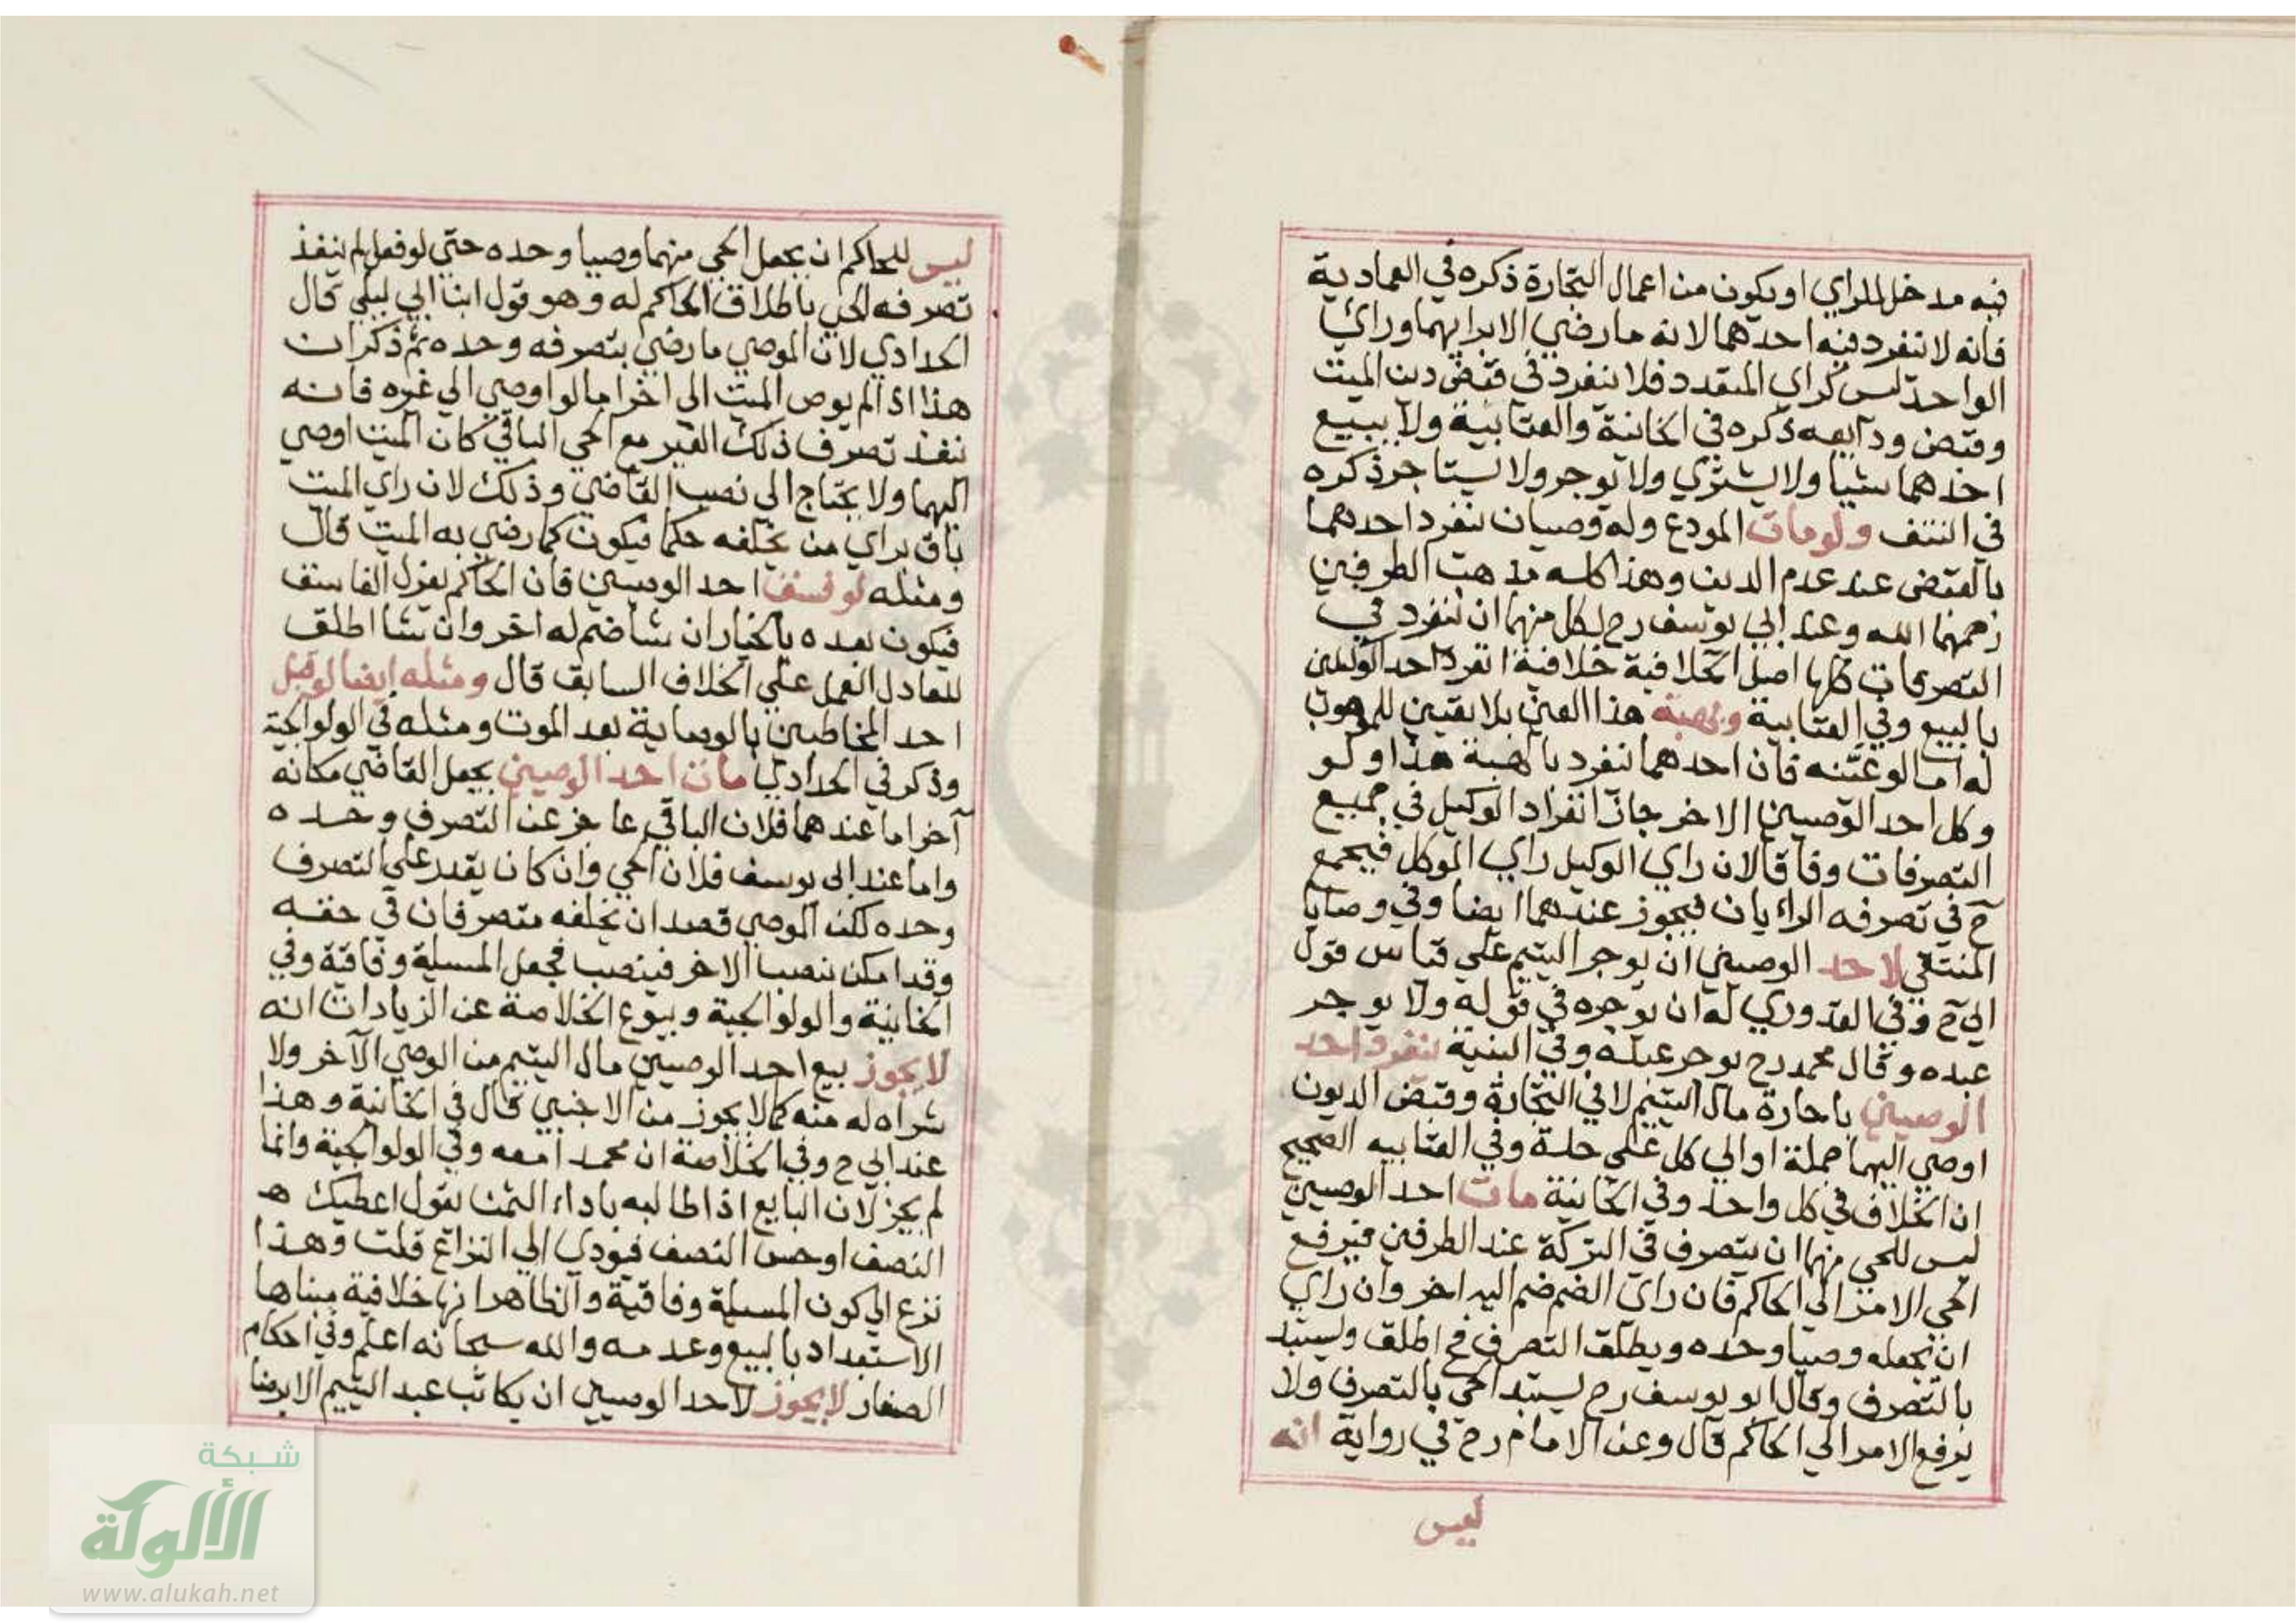 فيه مدخل للراي او يكون من اعمال التجارة ذكره في العمادية
فانه لا ينفرد فيه احدهما لانه ما رضي الا برايهما وراي
الواحد ليس كراي المتعدد فلا ينفرد في قبض دين الميت
وقبض ودآيعه ذكره في الخانية والعتابية ولا ببيع
احدهما شيا ولا يشتري ولا يوجر ولا يستاجر ذكره
في النتف ولومات المودع وله وصيان ينفرد احدهما
بالقبض عند عدم الدين وهذا كله مذهب الطرفين
رحمهما الله وعند ابي يوسف رح لكل منهما ان ينفرد في
التصرفات كلها اصل الخلافية خلافية انفرد احد الوكيلين
بالبيع وفي العتابية وبهبة هذا العين بلا يقين للموهوب
له اما لو عينه فان احدهما ينفرد بالهبة هذا ولو
وكل احد الوصيين الاخر جاز انفراد الوكيل في جميع
التصرفات وفاقا لان راي الوكيل راي الموكل فيجمع
ح في تصرفه الرايان فيجوز عندهما ايضا وفي وصايا
المنتقي لاحد الوصيين ان يوجر اليتيم علي قياس قول
ابي ح وفي القدوري له ان يوجره في قوله ولا يوجر
عبده وقال محمد رح يوجر عبده وفي البنية ينفرد احد
الوصيين باجارة مال اليتيم لا في التجارة وقبض الديون
اوصي اليهما جملة او الي كل علي حلة وفي العتابيه الصحيح
ان الخلاف في كل واحد وفي الخانية مات احد الوصيين
ليس للحي منهما ان يتصرف في التركة عند الطرفين فيرفع
الحي الامر الي الحاكم فان راي الضم ضم اليه اخر وان راي
ان يجعله وصيا وحده ويطلق التصرف فح اطلق وليستبد
بالتصرف وقال ابو يوسف رح يستبد الحي بالتصرف ولا
يرفع الامر الي الحاكم قال وعن الامام رح في رواية انه
ليس
ليس للحاكم ان يجعل الحي منهما وصيا وحده حتي لو فعل لم ينفذ
تصرفه الحي باطلاق الحاكم له وهو قول ابن ابي ليلي قال
الحدادي لان الموصي ما رضي بتصرفه وحده ثم ذكر ان
هذا اذا لم يوص الميت الي اخر اما لو اوصي الي غيره فانه
ينفذ تصرف ذلك الغير مع الحي الباقي كان الميت اوصي
اليهما ولا يحتاج الي نصب القاضي وذلك لان راي الميت
باق براي من يخلفه حكما فيكون كما رضي به الميت قال
ومثله لو فسق احد الوصيين فان الحاكم يعزل الفاسق
فيكون بعده بالخيار ان شا ضم له اخر وان شا اطلق
للعادل العمل علي الخلاف السابق قال ومثله ايضا لو قبل
احد المخاطبين بالوصاية بعد الموت ومثله في الولوالجية
وذكر في الحدادي مات احد الوصيين يجعل القاضي مكانه
آخر اما عندهما فلان الباقي عاجز عن التصرف وحده
واما عند ابي يوسف فلان الحي وان كان يقدر علي التصرف
وحده لكن الموصي قصد ان يخلفه متصرفان في حقه
وقد امكن بنصب الاخر فينصب فجعل المسيلة وفاقية وفي
الخانية والولوالجية وبيوع الخلاصة عن الزيادات انه
لا يجوز بيع احد الوصيين مال اليتيم من الوصي الآخر ولا
شراه له منه كما لا يجوز من الاجنبي قال في الخانية وهذا
عند ابي ح وفي الخلاصة ان محمدا معه وفي الولوالجية وانما
لم يجز لان البايع اذا طالبه باداء الثمن يقول اعطيك هـ
النصف او حبس النصف فيودي الي النزاع قلت وهذا
نزع الي كون المسيلة وفاقية والظاهر انها خلافية مبناها
الاستبداد بالبيع وعدمه والله سبحانه اعلم وفي احكام
الصغار لا يجوز لاحد الوصيين ان يكاتب عبد اليتيم الا برضا
شبكة
الألوكة
www.alukah.net